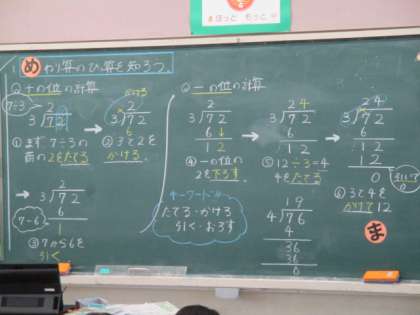 ほっと もっと
め わり算のひっ算を知ろう。
①十の位の計算
7÷3
2
3)72
かける
2
3)72
6
①まず7÷3の
商の2をたてる
②3と2を
かける。
2
3)72
6
1
7-6
③7から6を
引く
②一の位の計算
2
3)72
6↓
12
④一の位の
2を下ろす
24
3)72
6
12
⑤12÷3=4
4をたてる
24
3)72
6
12
12
0
⑥3と4を
かけて12
キーワード
たてる・かける
引く・おろす
19
4)76
4
36
36
0
ま